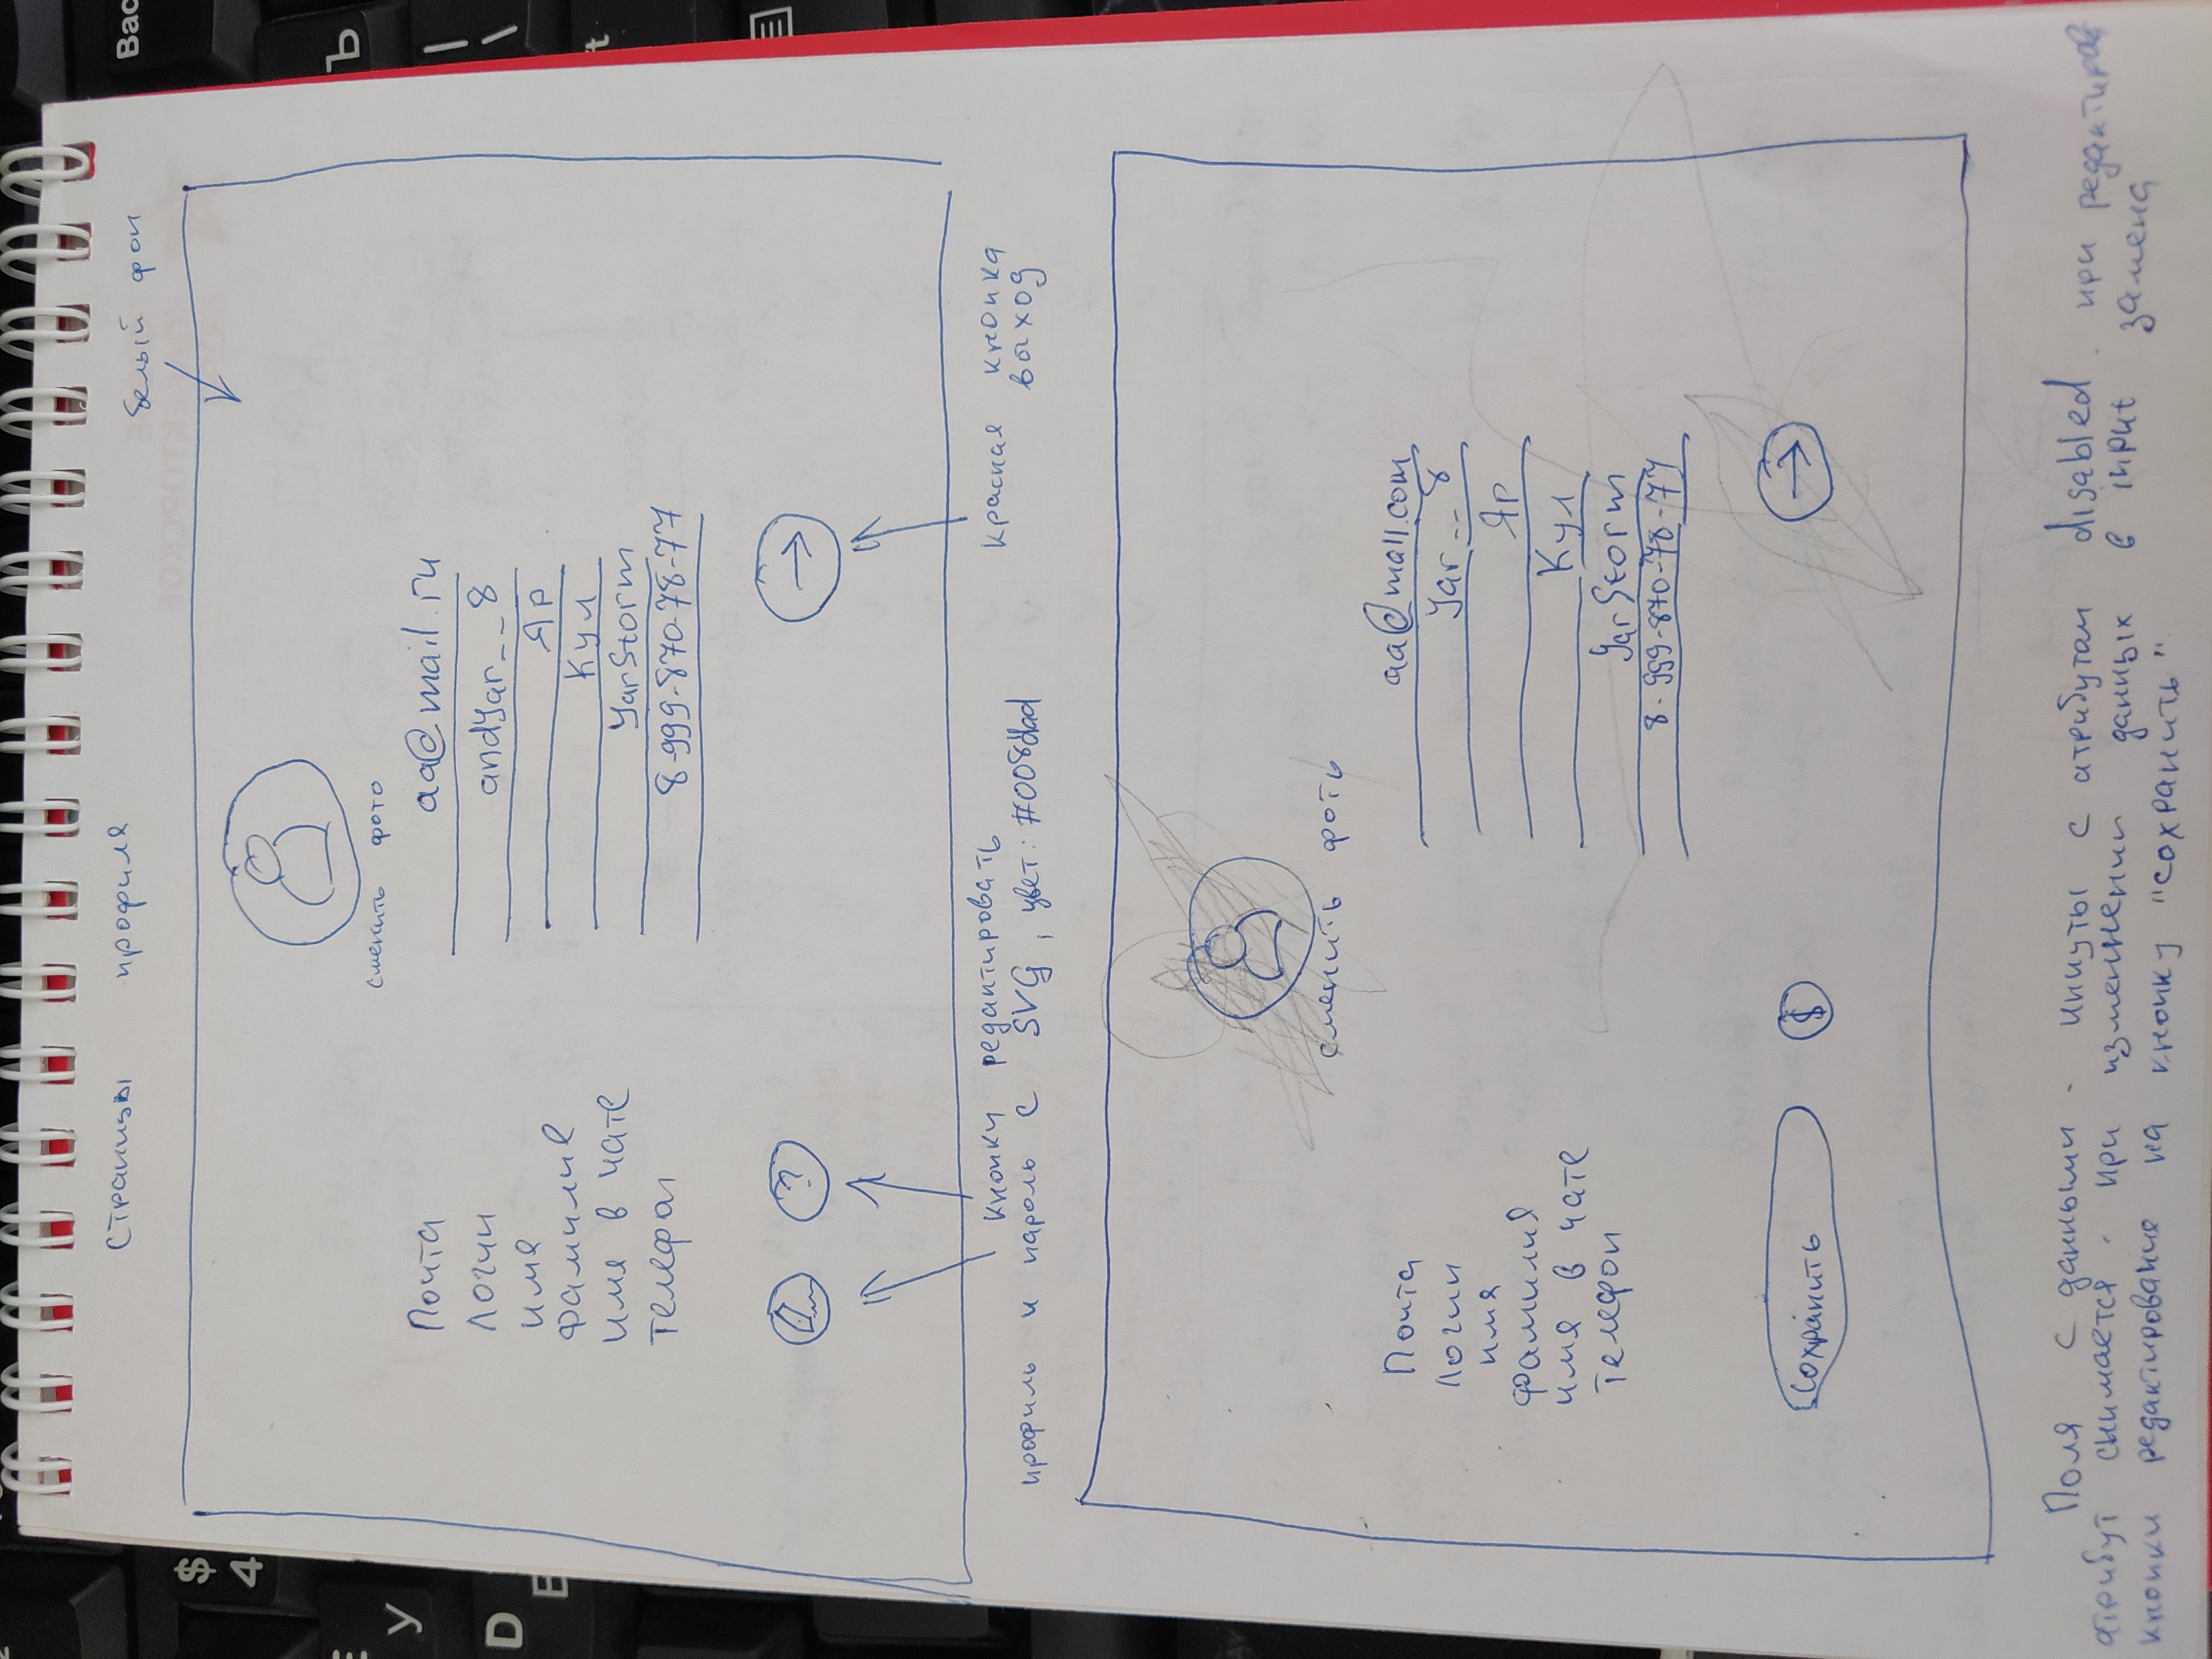 страницы профиля
белый фон
сменить фото
Почта aa@mail.ru
Логин andYar__8
имя Яр
фамилия Кул
имя в чате YarStorm
телефон 8-999-870-78-77
?
кнопки редактировать
профиль и пароль с SVG, цвет: #008dad
красная кнопка
выход
сменить фото
Почта aa@mail.com
Логин Yar__8
имя Яр
фамилия Кул
имя в чате YarStorm
телефон 8-999-870-78-77
сохранить $
Поля с данными - инпуты с атрибутом disabled. при редактиров
атрибут снимается. при изменении данных в input замена
кнопки редактирование на кнопку "сохранить"
$
4
У
D
Bac
Ъ
|
\